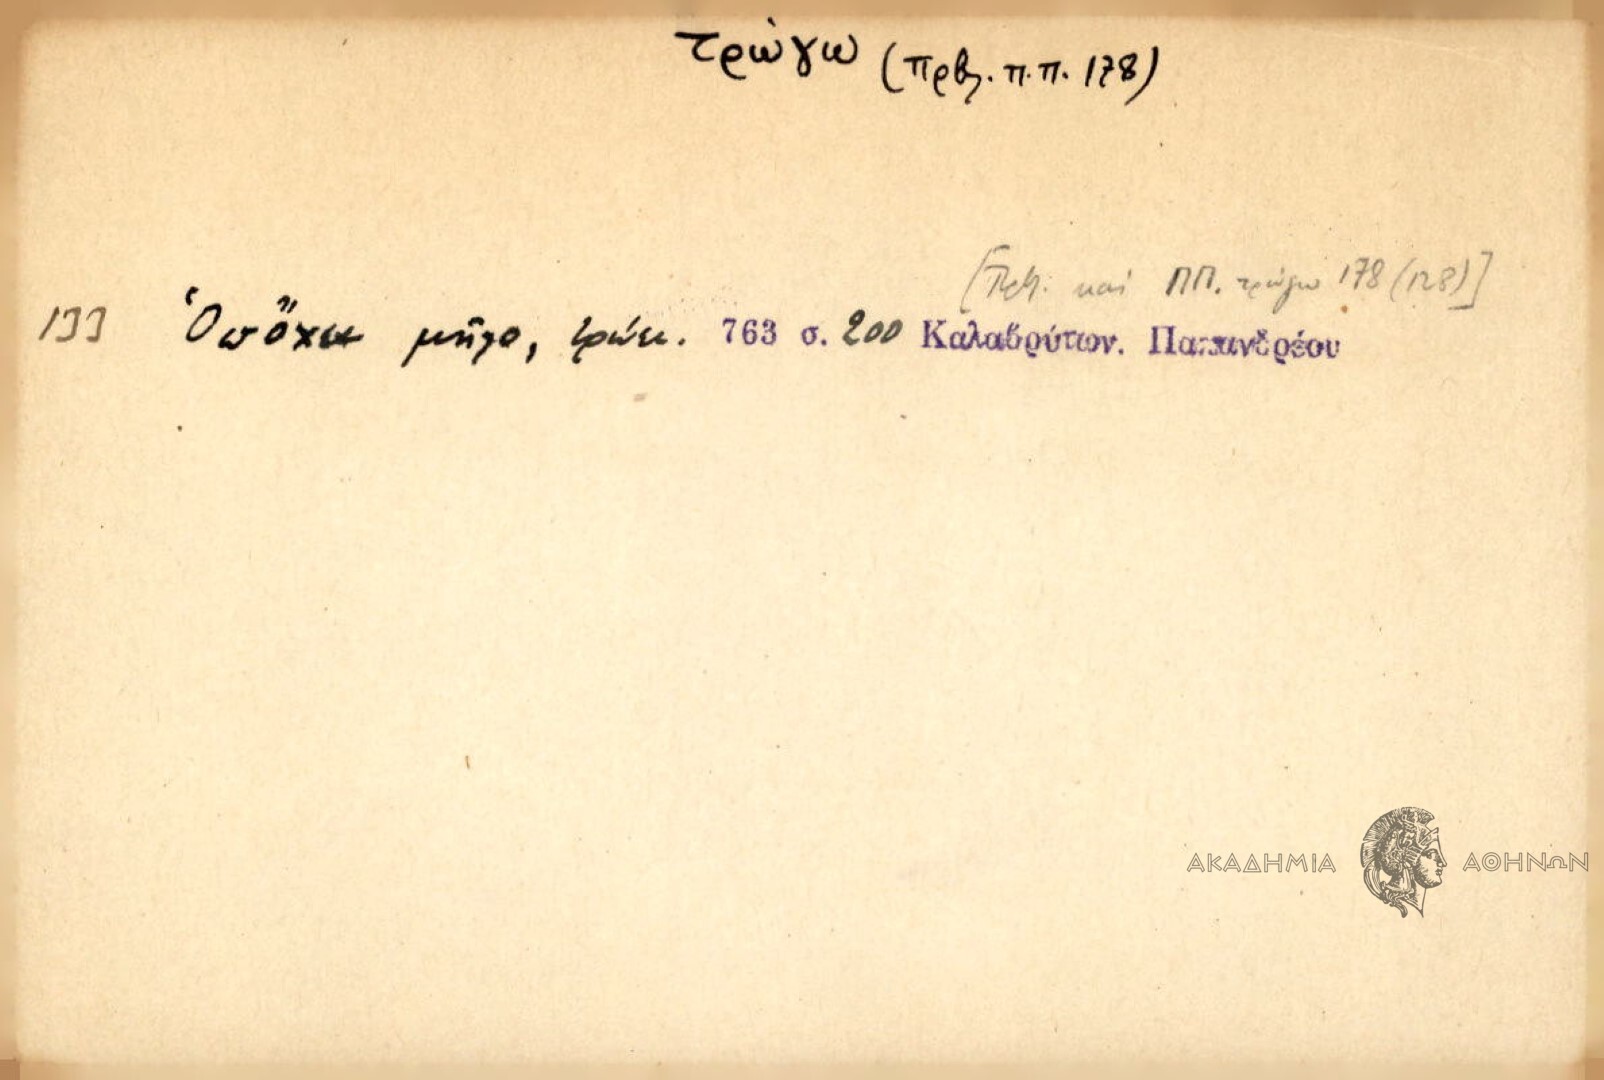 τρώγω (Πρβλ. π.π. 178)
[Πρβλ. και ΠΠ. τρώγω 178 (128)]
133 Ὁπὄχει μῆλο, τρώει. 763 σ. 200 Καλαβρύτων. Παπανδρέου
ΑΚΑΔΗΜΙΑ ΑΘΗΝΩΝ